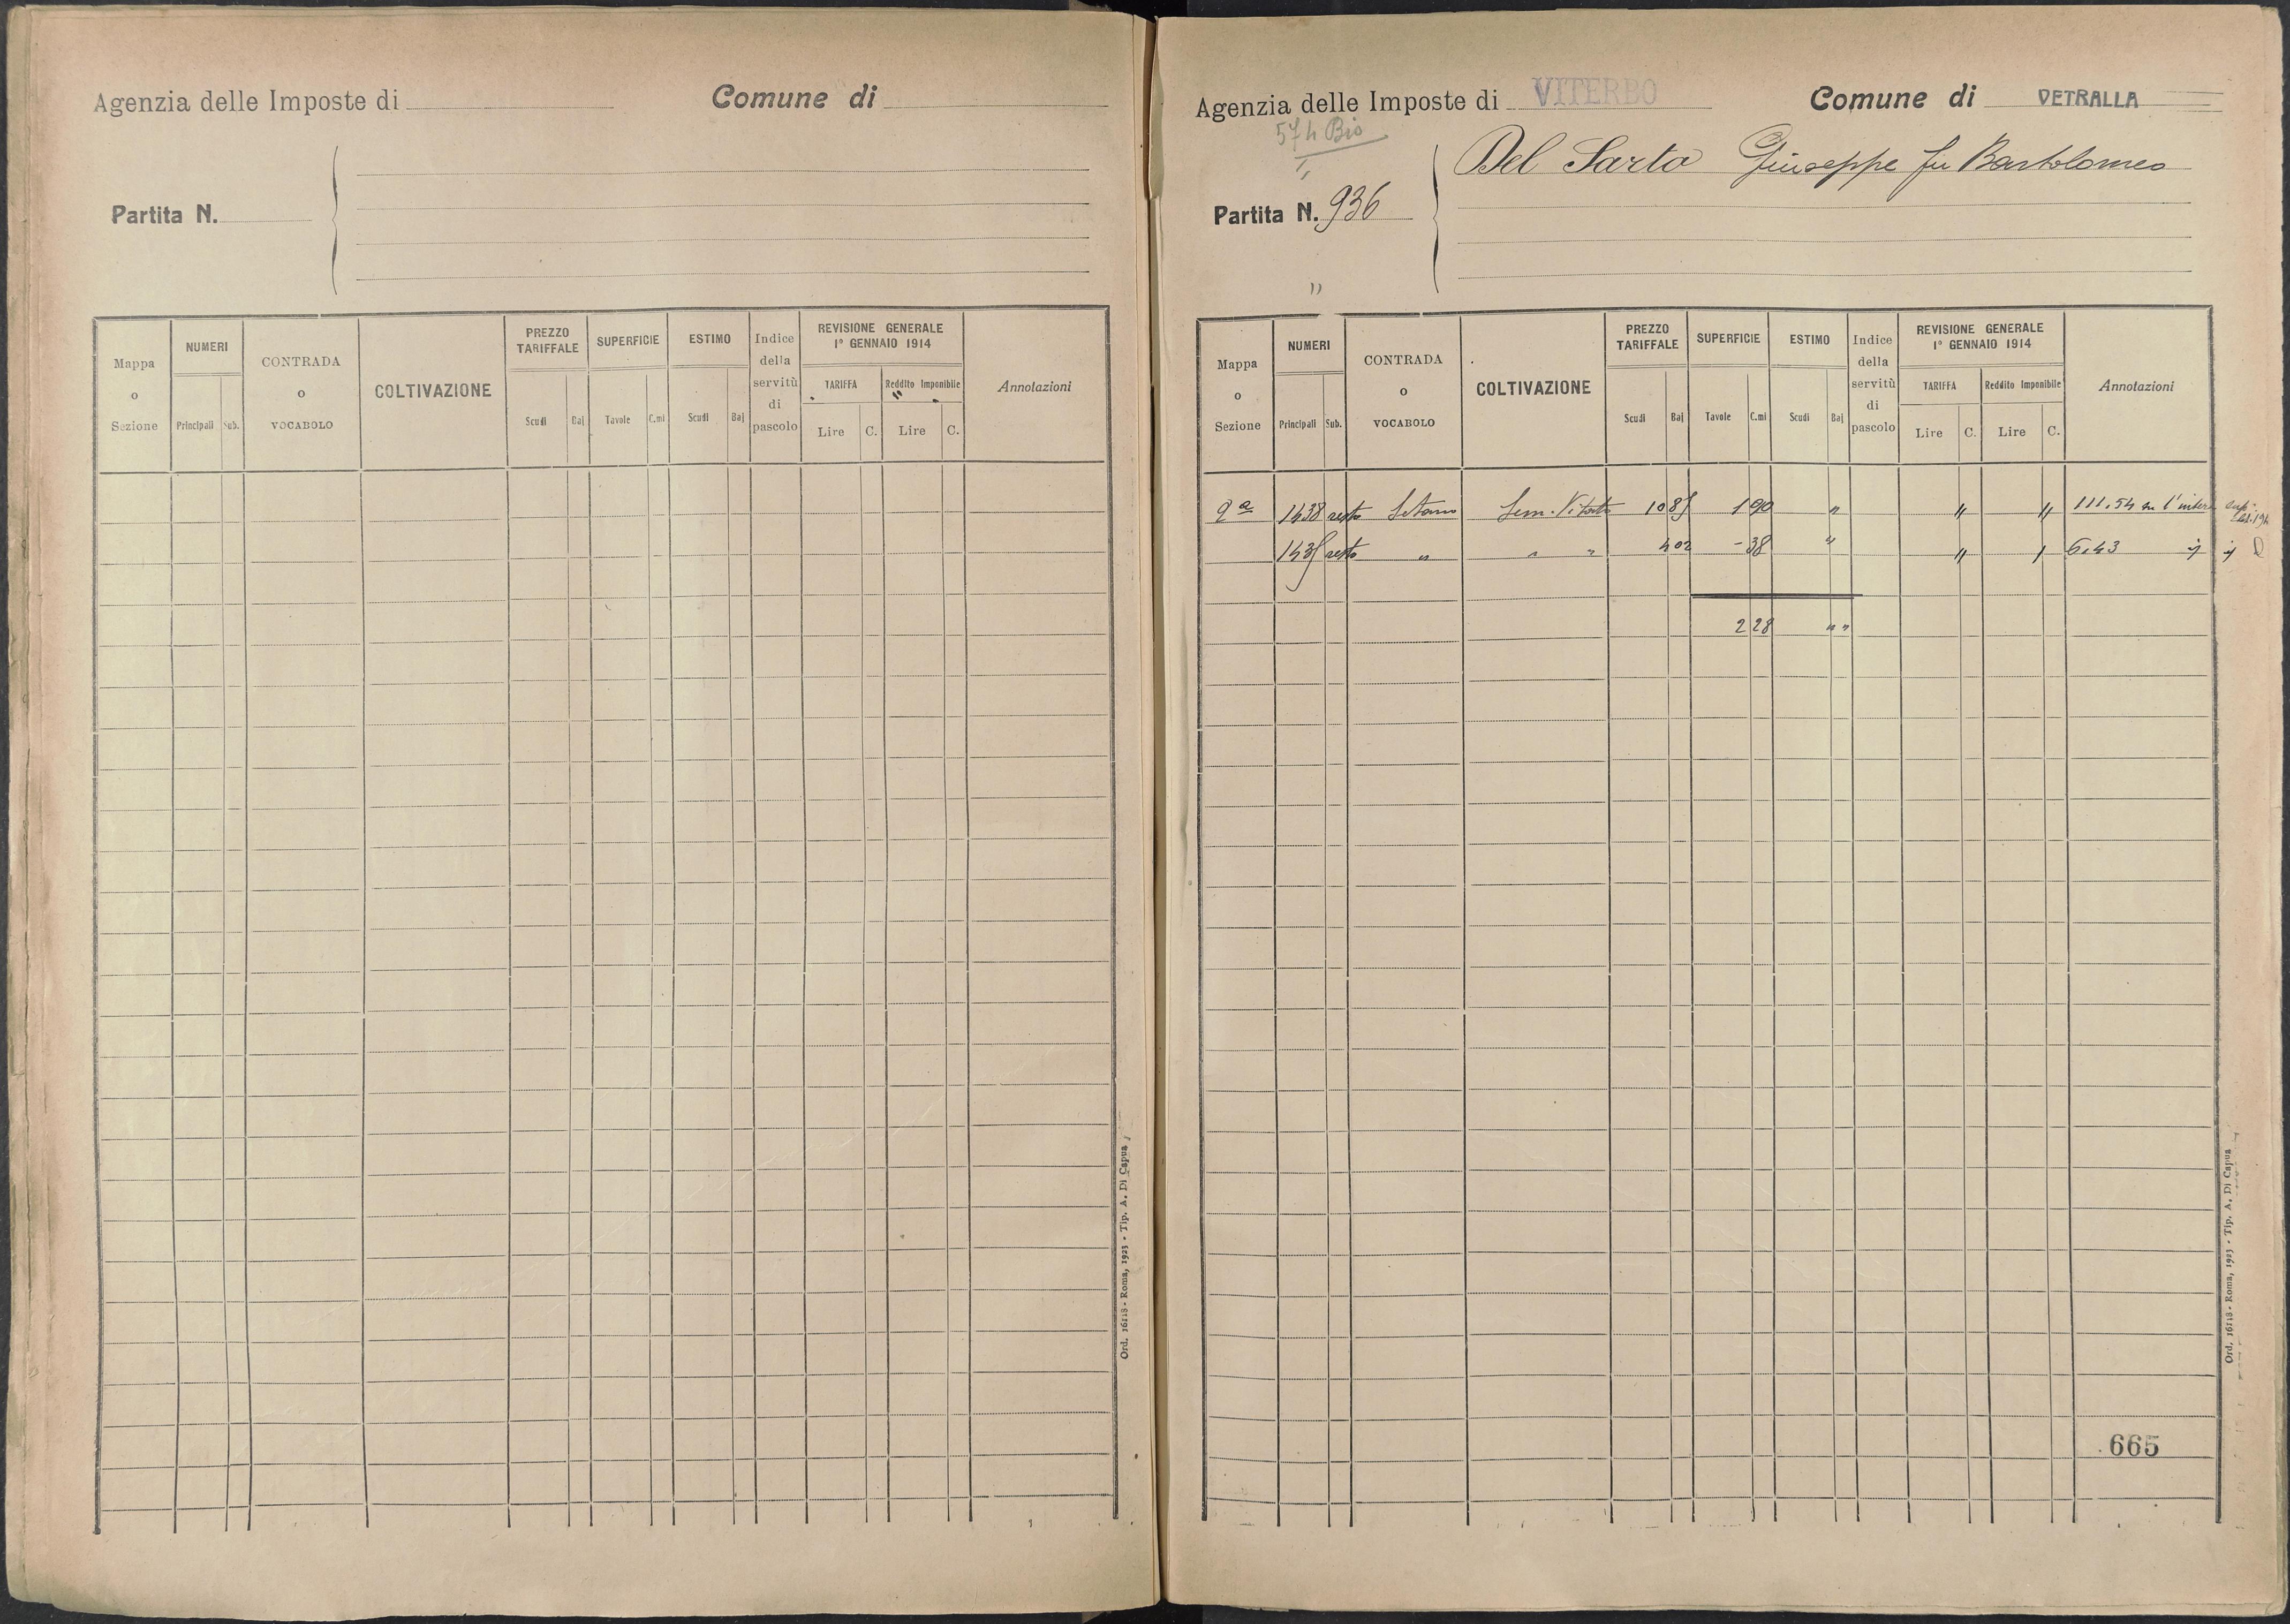 Agenzia delle Imposte di
Comune di
Partita N.
Mappa o Sezione
NUMERI
Principali
Sub.
CONTRADA o VOCABOLO
COLTIVAZIONE
PREZZO TARIFFALE
Scudi
Baj
SUPERFICIE
Tavole
C.mi
ESTIMO
Scudi
Baj
Indice della servitù di pascolo
REVISIONE GENERALE
1° GENNAIO 1914
TARIFFA
Reddito Imponibile
Lire
C.
Lire
C.
Annotazioni
Ord. 16118 - Roma, 1923 - Tip. A. Di Capua
Agenzia delle Imposte di VITERBO
Comune di VETRALLA
574 Bis
Del Sarto Giuseppe fu Bartolomeo
Partita N. 936
Mappa o Sezione
NUMERI
Principali
Sub.
CONTRADA o VOCABOLO
COLTIVAZIONE
PREZZO TARIFFALE
Scudi
Baj
SUPERFICIE
Tavole
C.mi
ESTIMO
Scudi
Baj
Indice della servitù di pascolo
REVISIONE GENERALE
1° GENNAIO 1914
TARIFFA
Reddito Imponibile
Lire
C.
Lire
C.
Annotazioni
2ª 1438 resto Sem. Vitato 1 90 " " " 111.54
resto " " " 4 02 - 38 " " 6.43
2 28 " "
665
Ord. 16118 - Roma, 1923 - Tip. A. Di Capua